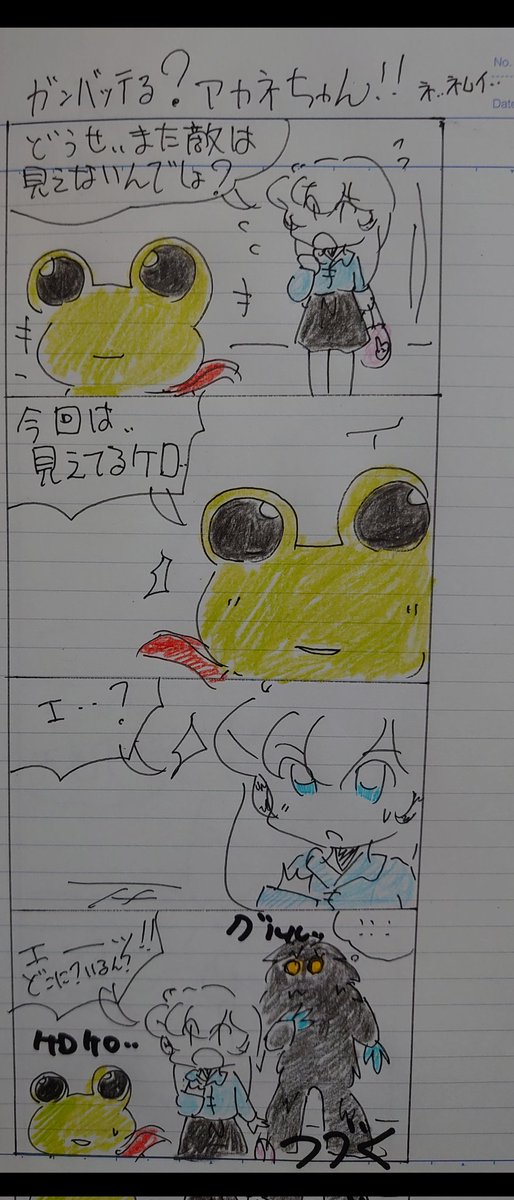 No.
Date
ガンバッテる?アカネちゃん!! ネ..ネムイ..
どうせ..また敵は
見えないんでしょ?
今回は..
見えてるケロ..
エ‥?
エーーッ!!
どこに?いるん?
グルル..
ケロケロ..
つづく